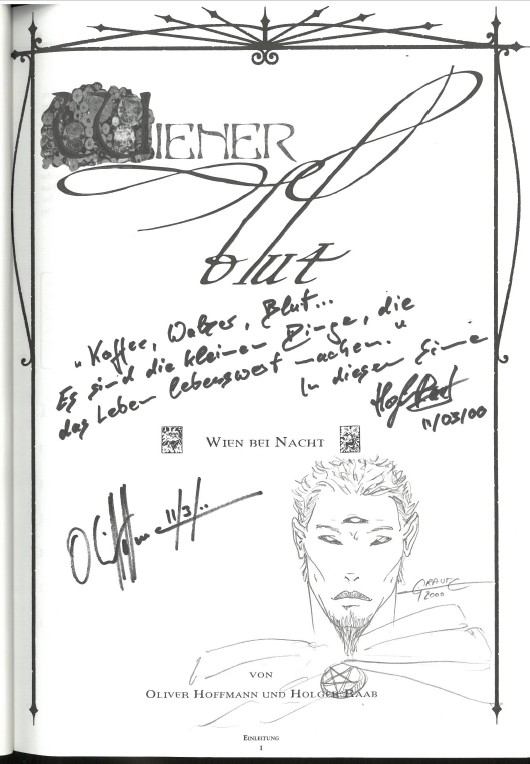 WIENER
blut
"Kaffee, Walzer, Blut...
Es sind die kleinen Dinge, die
das Leben lebenswert machen."
In diesem Sinne
11/03/00
WIEN BEI NACHT
11/3/..
GRAUTC
2000
VON
OLIVER HOFFMANN UND HOLGER RAAB
EINLEITUNG
1